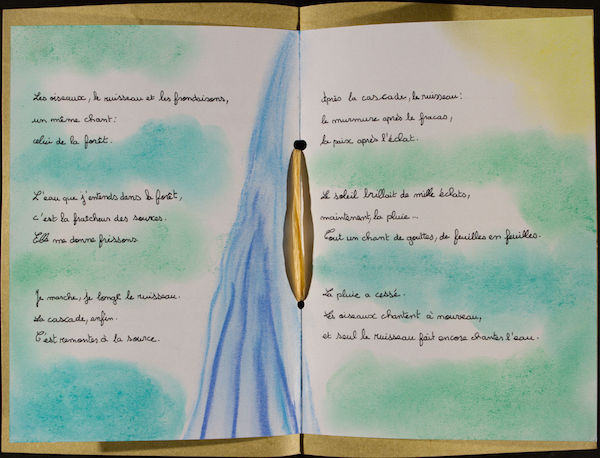 Les oiseaux, le ruisseau et les frondaisons,
un même chant :
celui de la forêt.
L'eau que j'entends dans la forêt,
c'est la fraîcheur des sources.
Elle me donne frissons.
Je marche, je longe le ruisseau.
La cascade, enfin.
C'est remonter à la source.
Après la cascade, le ruisseau :
le murmure après le fracas,
la paix après l'éclat.
Le soleil brillait de mille éclats,
maintenant, la pluie...
Tout un chant de gouttes, de feuilles en feuilles.
La pluie a cessé.
Les oiseaux chantent à nouveau,
et seul le ruisseau fait encore chanter l'eau.